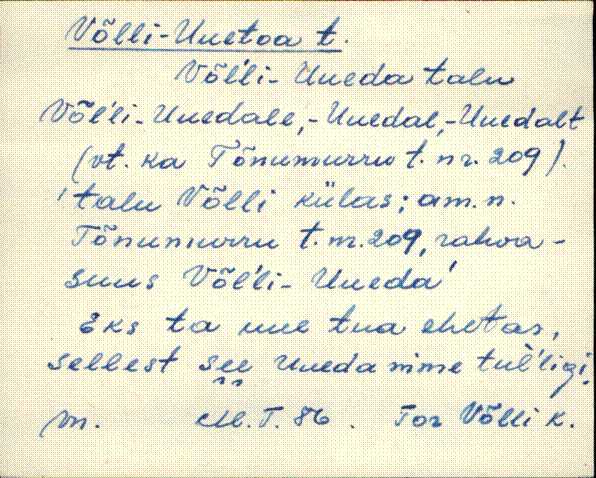 Võlli-Uuetoa t.
Võl'li-Uueda talu
Võl'li-Uuedale,-Uuedal,-Uuedalt
(vt. ka Tõnumurru t. nr. 209).
'talu Võlli külas; am. n.
Tõnumurru t. nr. 209, rahva-
suus Võl'li-Uueda'
Eks ta uue tua ehetas,
sellest see Uueda nime tul'ligi.
M.T. 86. Tor Võlli k.